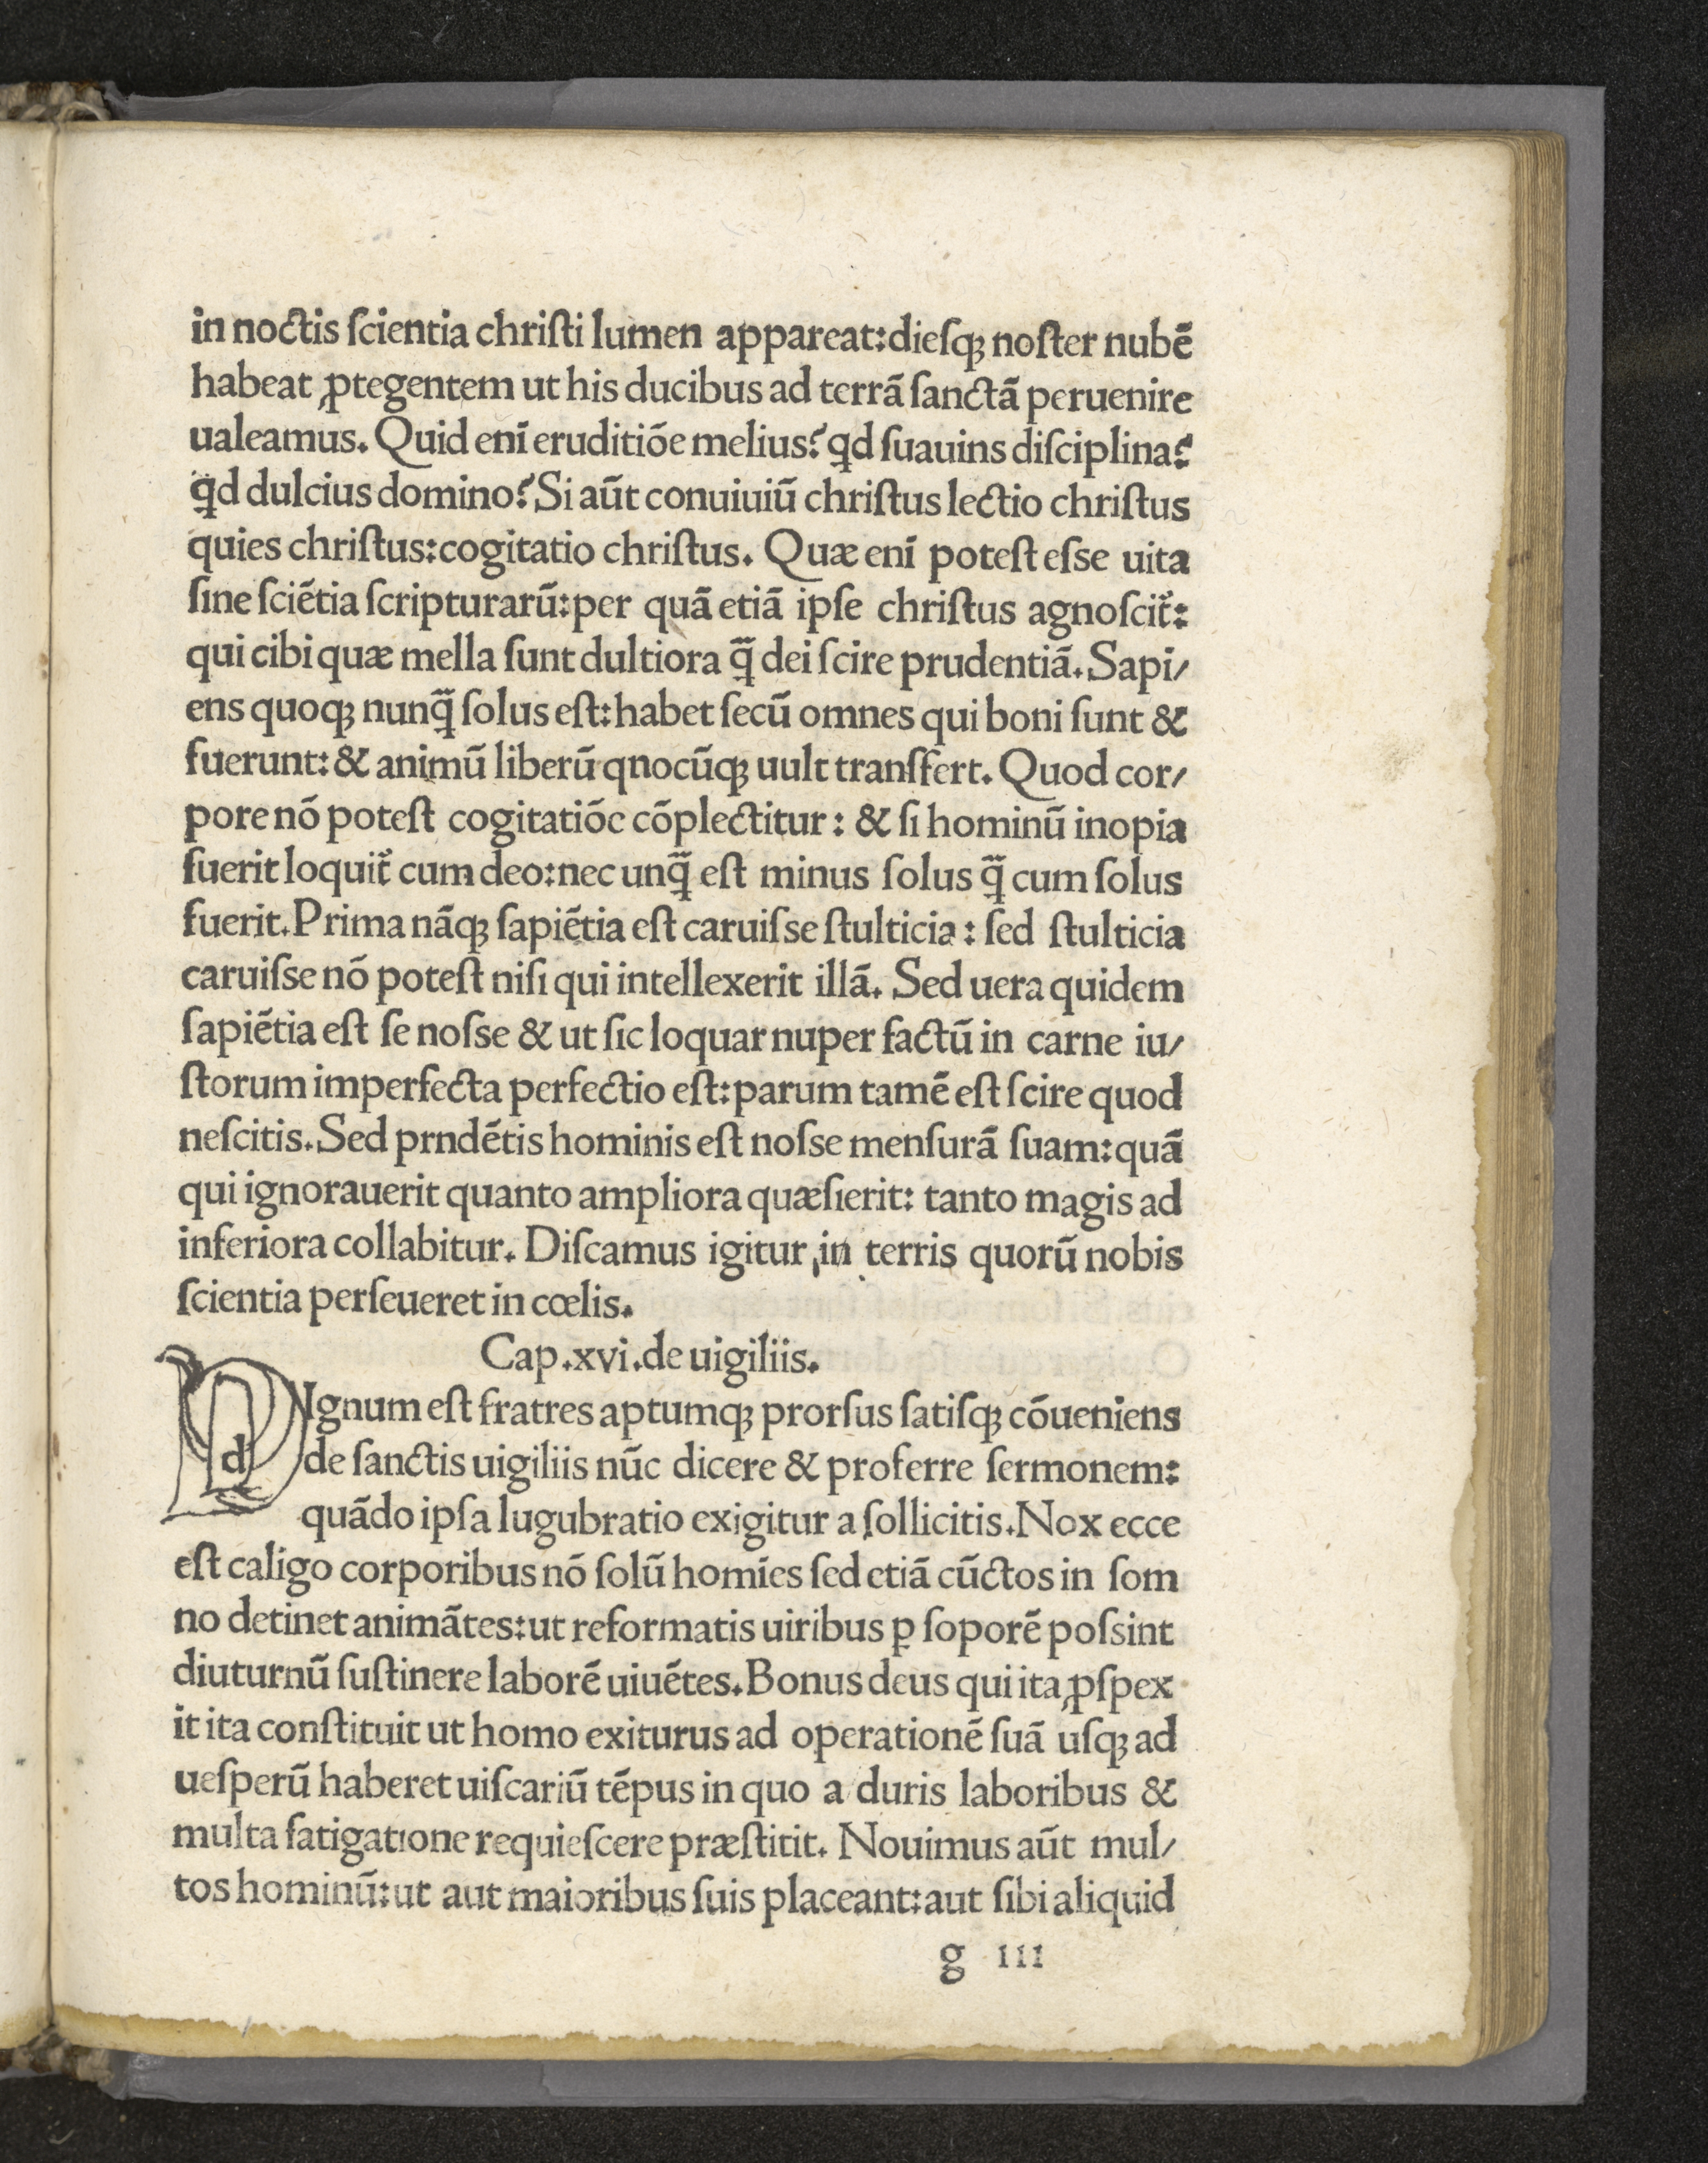 in noctis ſcientia chriſti lumen appareat:dieſqꝫ noſter nubē
habeat ꝓtegentem ut his ducibus ad terrā ſanctā peruenire
ualeamus. Quid enī eruditiōe melius? qͥd ſuauins diſciplina?
qͥd dulcius domino? Si aūt conuiuiū chriſtus lectio chriſtus
quies chriſtus:cogitatio chriſtus. Quæ enī poteſt eſse uita
ſine ſciētia ſcripturarū:per quā etiā ipſe chriſtus agnoſcit᷑:
qui cibi quæ mella ſunt dultiora q̄̃ dei ſcire prudentiā. Sapi/
ens quoqꝫ nunq̄̃ ſolus eſt:habet ſecū omnes qui boni ſunt &
fuerunt:& animū liberū qnocūqꝫ uult tranſfert. Quod cor/
pore nō poteſt cogitatiōe cōplectitur: & ſi hominū inopia
fuerit loquit᷑ cum deo:nec unq̄̃ eſt minus ſolus q̄̃ cum ſolus
fuerit. Prima nāqꝫ ſapiētia eſt caruiſse ſtulticia: ſed ſtulticia
caruiſse nō poteſt niſi qui intellexerit illā. Sed uera quidem
ſapiētia eſt ſe noſse & ut ſic loquar nuper factū in carne iu/
ſtorum imperfecta perfectio eſt:parum tamē eſt ſcire quod
neſcitis. Sed prndētis hominis eſt noſse menſurā ſuam:quā
qui ignorauerit quanto ampliora quæſierit: tanto magis ad
inferiora collabitur. Diſcamus igitur in terris quorū nobis
ſcientia perſeueret in cœlis.
Cap.xvi.de uigiliis.
d Ignum eſt fratres aptumqꝫ prorſus ſatiſqꝫ cōueniens
de ſanctis uigiliis nūc dicere & proferre ſermonem:
quādo ipſa lugubratio exigitur a ſollicitis. Nox ecce
eſt caligo corporibus nō ſolū homīes ſed etiā cūctos in ſom
no detinet animātes:ut reformatis uiribus ꝑ ſoporē poſsint
diuturnū ſuſtinere laborē uiuētes. Bonus deus qui ita ꝓſpex
it ita conſtituit ut homo exiturus ad operationē ſuā uſqꝫ ad
ueſperū haberet uiſcariū tēpus in quo a duris laboribus &
multa fatigatione requieſcere præſtitit. Nouimus aūt mul/
tos hominū:ut aut maioribus ſuis placeant:aut ſibi aliquid
g iii